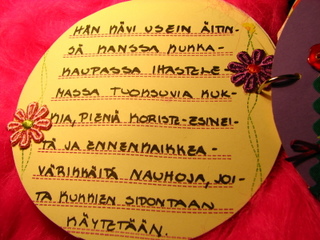 HÄN KÄVI USEIN ÄITIN-
SÄ KANSSA KUKKA-
KAUPASSA IHASTELE-
MASSA TUOKSUVIA KUK-
KIA, PIENIÄ KORISTE-ESINEI-
TÄ JA ENNENKAIKKEA -
VÄRIKKÄITÄ NAUHOJA, JOI-
TA KUKKIEN SIDONTAAN
KÄYTETÄÄN.